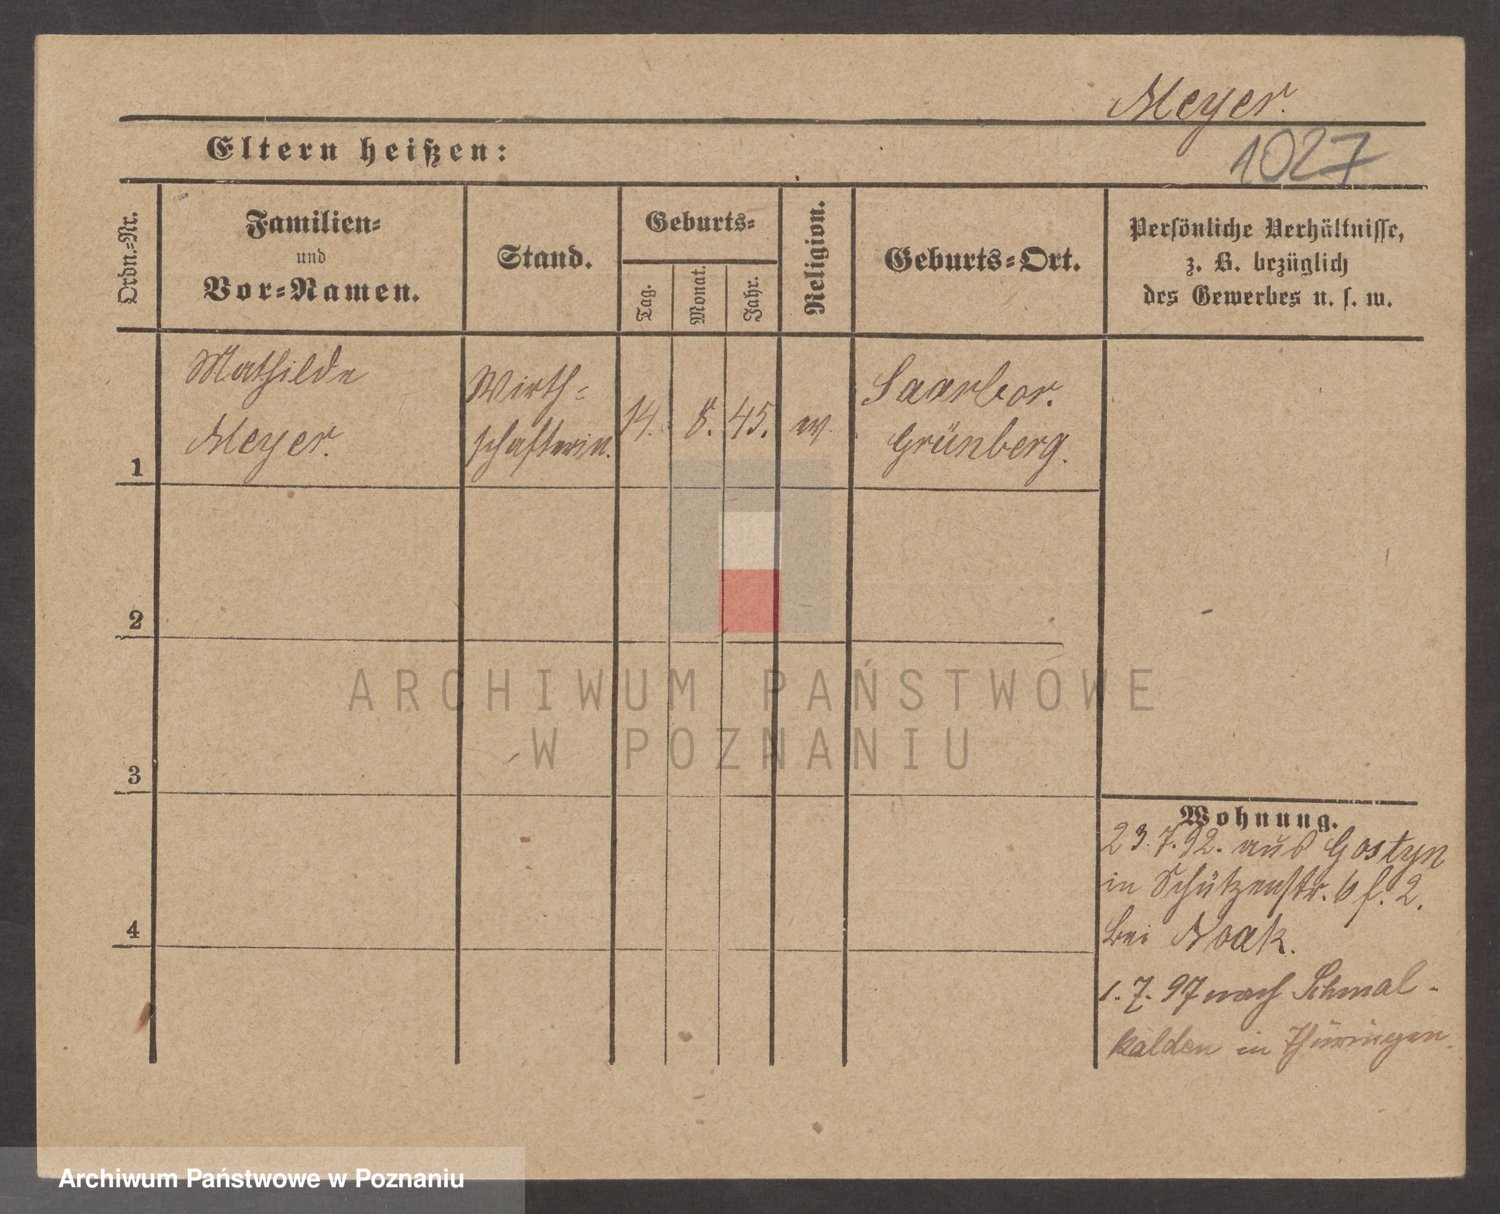 Meyer.
Eltern heißen:
1027
Ordn.-Nr.
Familien-
und
Vor-Namen.
Stand.
Geburts-
Tag.
Monat.
Jahr.
Religion.
Geburts-Ort.
Persönliche Verhältnisse,
z. B. bezüglich
des Gewerbes u. s. w.
1
Mathilde
Meyer.
Wirth-
schafterin.
14. 8. 45.
ev.
Saarbor.
Grünberg.
2
3
4
Wohnung.
23.7.92. aus Gostyn
in Schützenstr. 6 f. 2.
bei Noak.
1.7.97 nach Schmal-
kalden in Thüringen.
ARCHIWUM PAŃSTWOWE
W POZNANIU
Archiwum Państwowe w Poznaniu